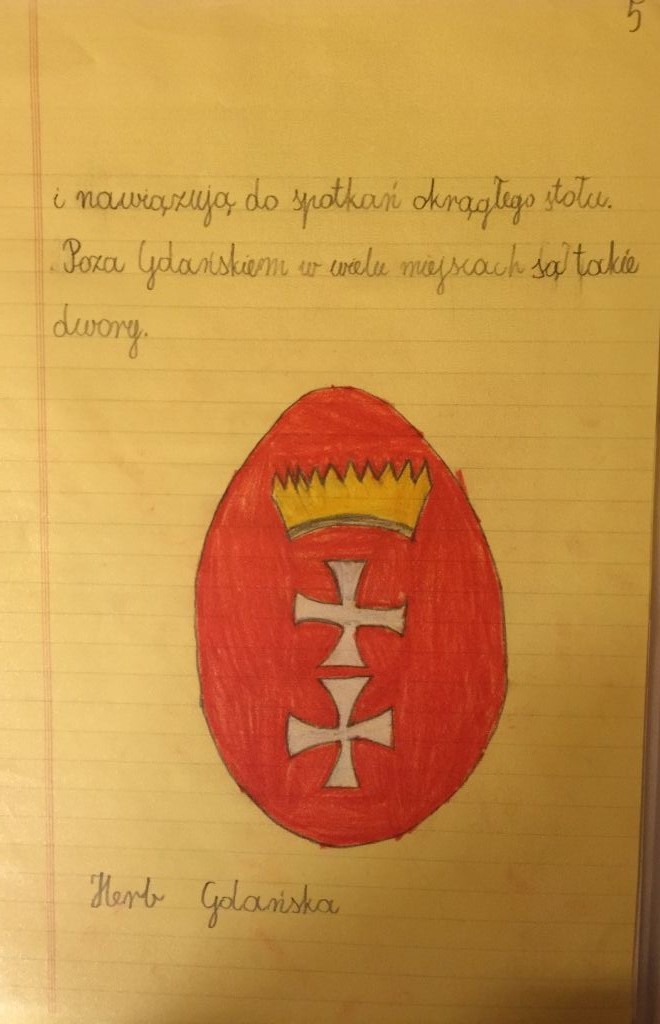 5
i nawiązują do spotkań okrągłego stołu.
Poza Gdańskiem w wielu miejscach są takie
dwory.
Herb Gdańska